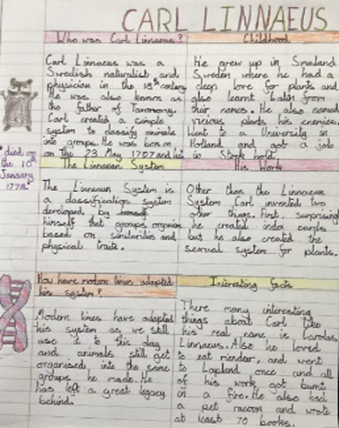 CARL LINNAEUS
Who was Carl Linnaeus?
Carl Linnaeus was a
Swedish naturalist and
physician in the 18th century.
He was also known as
the father of Taxonomy.
Carl created a
system to classify animals
into groups. He was born
on the 23 May 1707 and he
died on
the 10th
January
1778
Childhood
He grew up in
Sweden where he had a
deep love for plants and
also learnt Latin from
their names. He also named
vicious plants his enemies.
Went to a University in
Holland and got a job
in
The Linnaean System
The Linnaean System is
a classification system
developed by
himself that groups
based on similarities and
physical traits.
His Work
Other than the Linnaean
System Carl invented two
other things. First, surprisingly
he created index cards
but he also created the
sexual system for plants.
How have modern times adapted
his system?
Modern times have adapted
his system as we still
use it to this day
and animals still get
organised into the same
groups he made. He
has left a great legacy
behind.
Interesting facts
There many interesting
things about Carl like
his real name is
Linnaeus. Also he loved
to eat and went
to Lapland once and all
of his work got burnt
in a fire. He also had
a pet and wrote
at least 70 books.